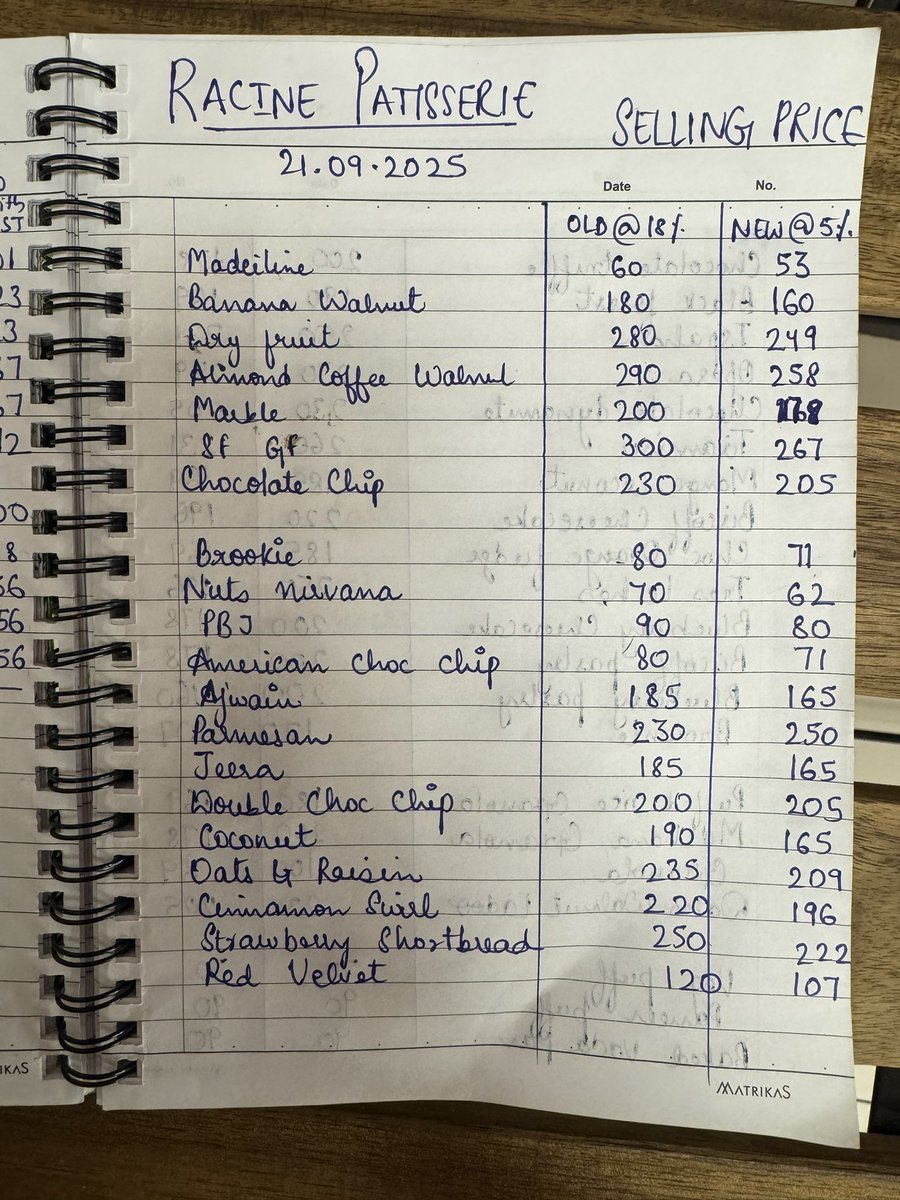 RACINE PATISSERIE
SELLING PRICE
21.09.2025
Date No.
OLD @ 18% NEW @ 5%
Madeiline 60 53
Banana Walnut 180 160
Dry fruit 280 249
Almond Coffee Walnut 290 258
Marble 200
Sf Gf 300 267
Chocolate Chip 230 205
Brookie 80 71
Nuts nirvana 70 62
PBJ 90 80
American choc chip 80 71
Ajwain 185 165
Parmesan 230 250
Jeera 185 165
Double Choc Chip 200 205
Coconut 190 165
Oats & Raisin 235 209
Cinnamon Swirl 220 196
Strawberry Shortbread 250 222
Red Velvet 120 107
MATRIKAS